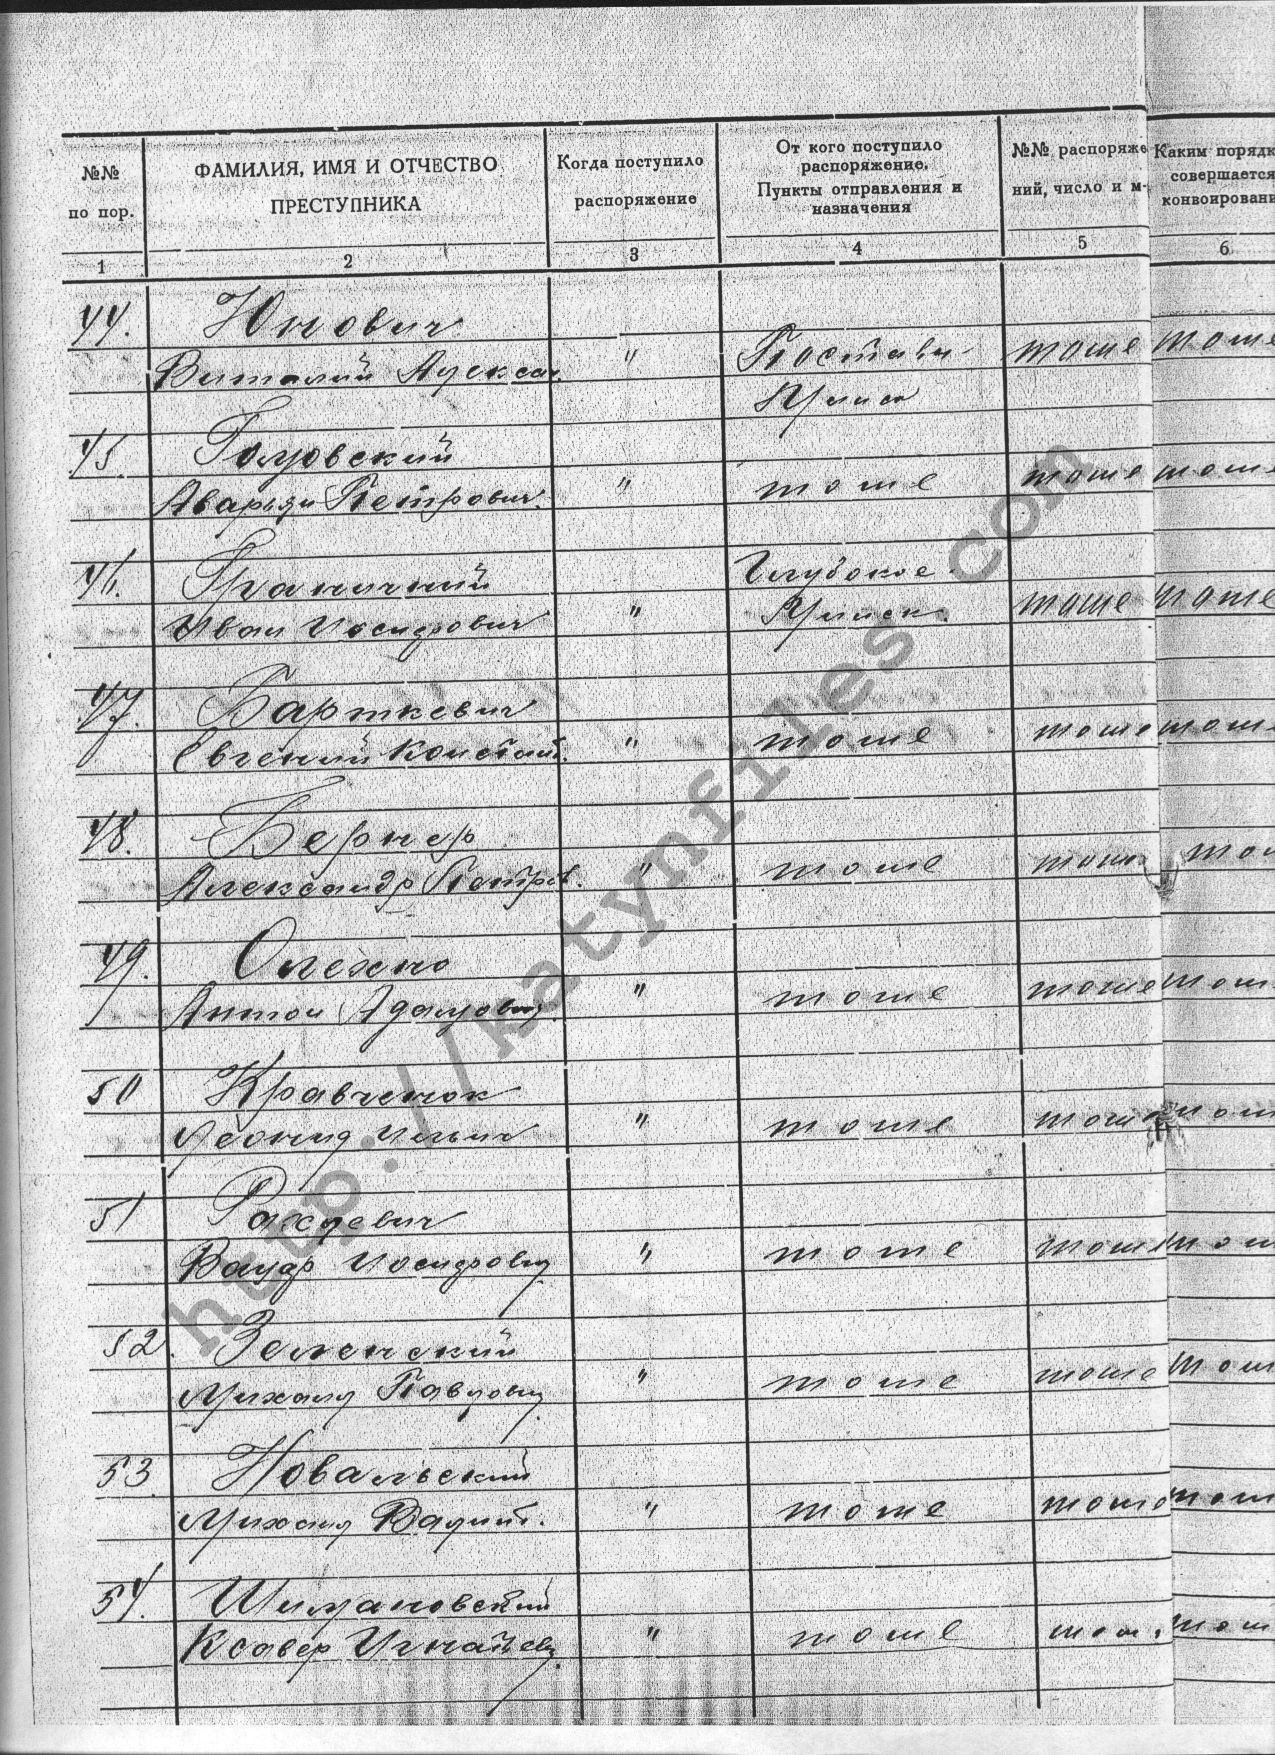 №№
по пор.
ФАМИЛИЯ, ИМЯ И ОТЧЕСТВО
ПРЕСТУПНИКА
Когда поступило
распоряжение
От кого поступило
распоряжение.
Пункты отправления и
назначения
№№ распоряже
ний, число и м-
Каким порядк
совершается
конвоировани
1
2
3
4
5
6
44. Юнович
Виталий Алексан. " Поставы- тоже тоже
Минск
45. Голуовский
Петрович. " тоже тоже тоже
46. Граничный Глубокое
Иван Иосифович " Минск. тоже тоже
47. Барткевич
Евгений Констант. " тоже тоже тоже
48. Бернер
Александр Петров. " тоже тоже то
49. Олехно
Антон Адамович. " тоже тоже тоже
50 Кравченок
Леонид Ильич " тоже тоже тоже
51
Иосифович " тоже тоже тоже
52. Зеленский
Михаил Павлович " тоже тоже тоже
53. Новальский
Михаил " тоже тоже тоже
54. Шимановский
Ксавер Игнатьев. " тоже тож. тоже
http://katynfiles.com